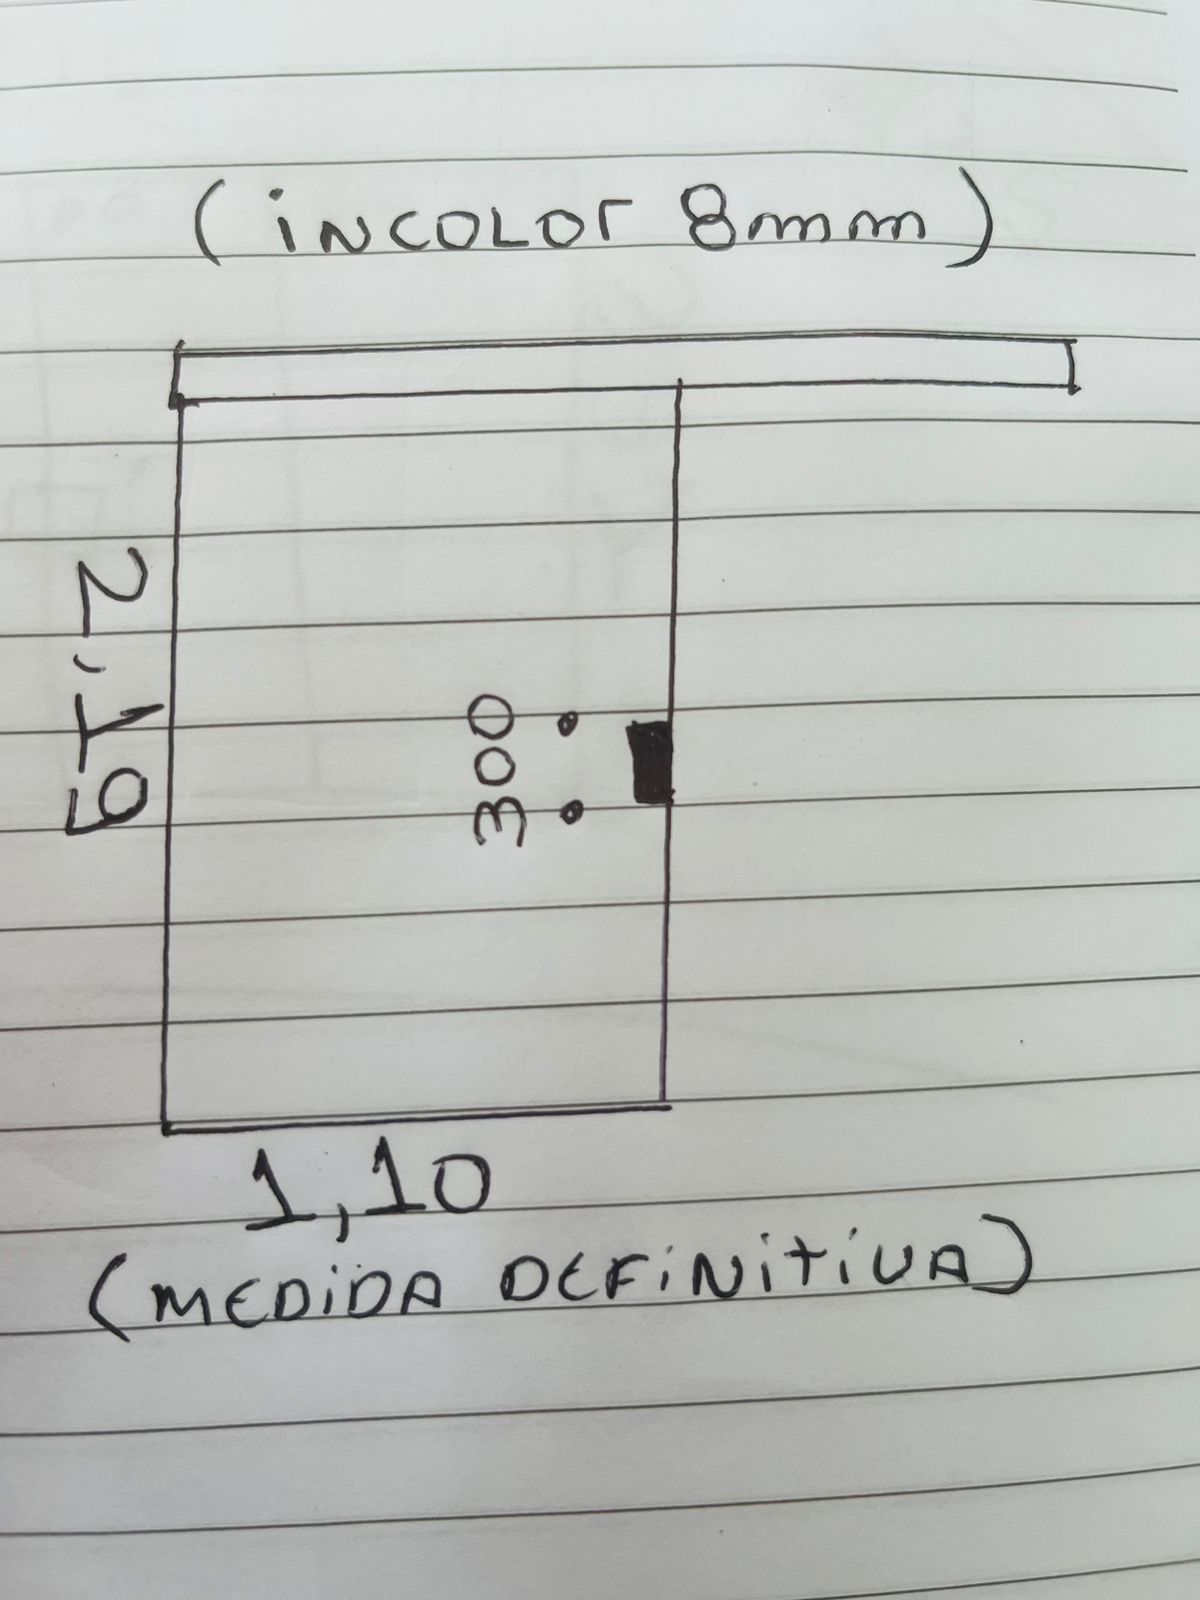 (iNCOLOr 8mm)
2,19
300
1,10
(MEDiDA DEFiNiTiVA)